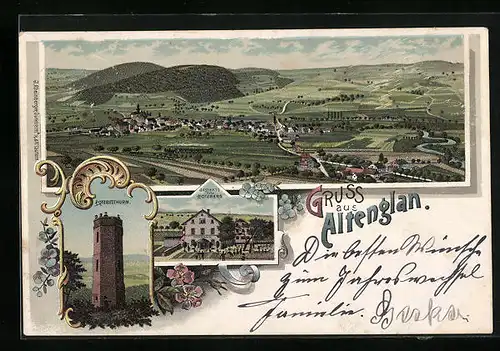 GRUSS
aus
Altenglan.
POTZBERGTHURM.
Die besten Wünsche
zum Jahreswechsel
Familie.